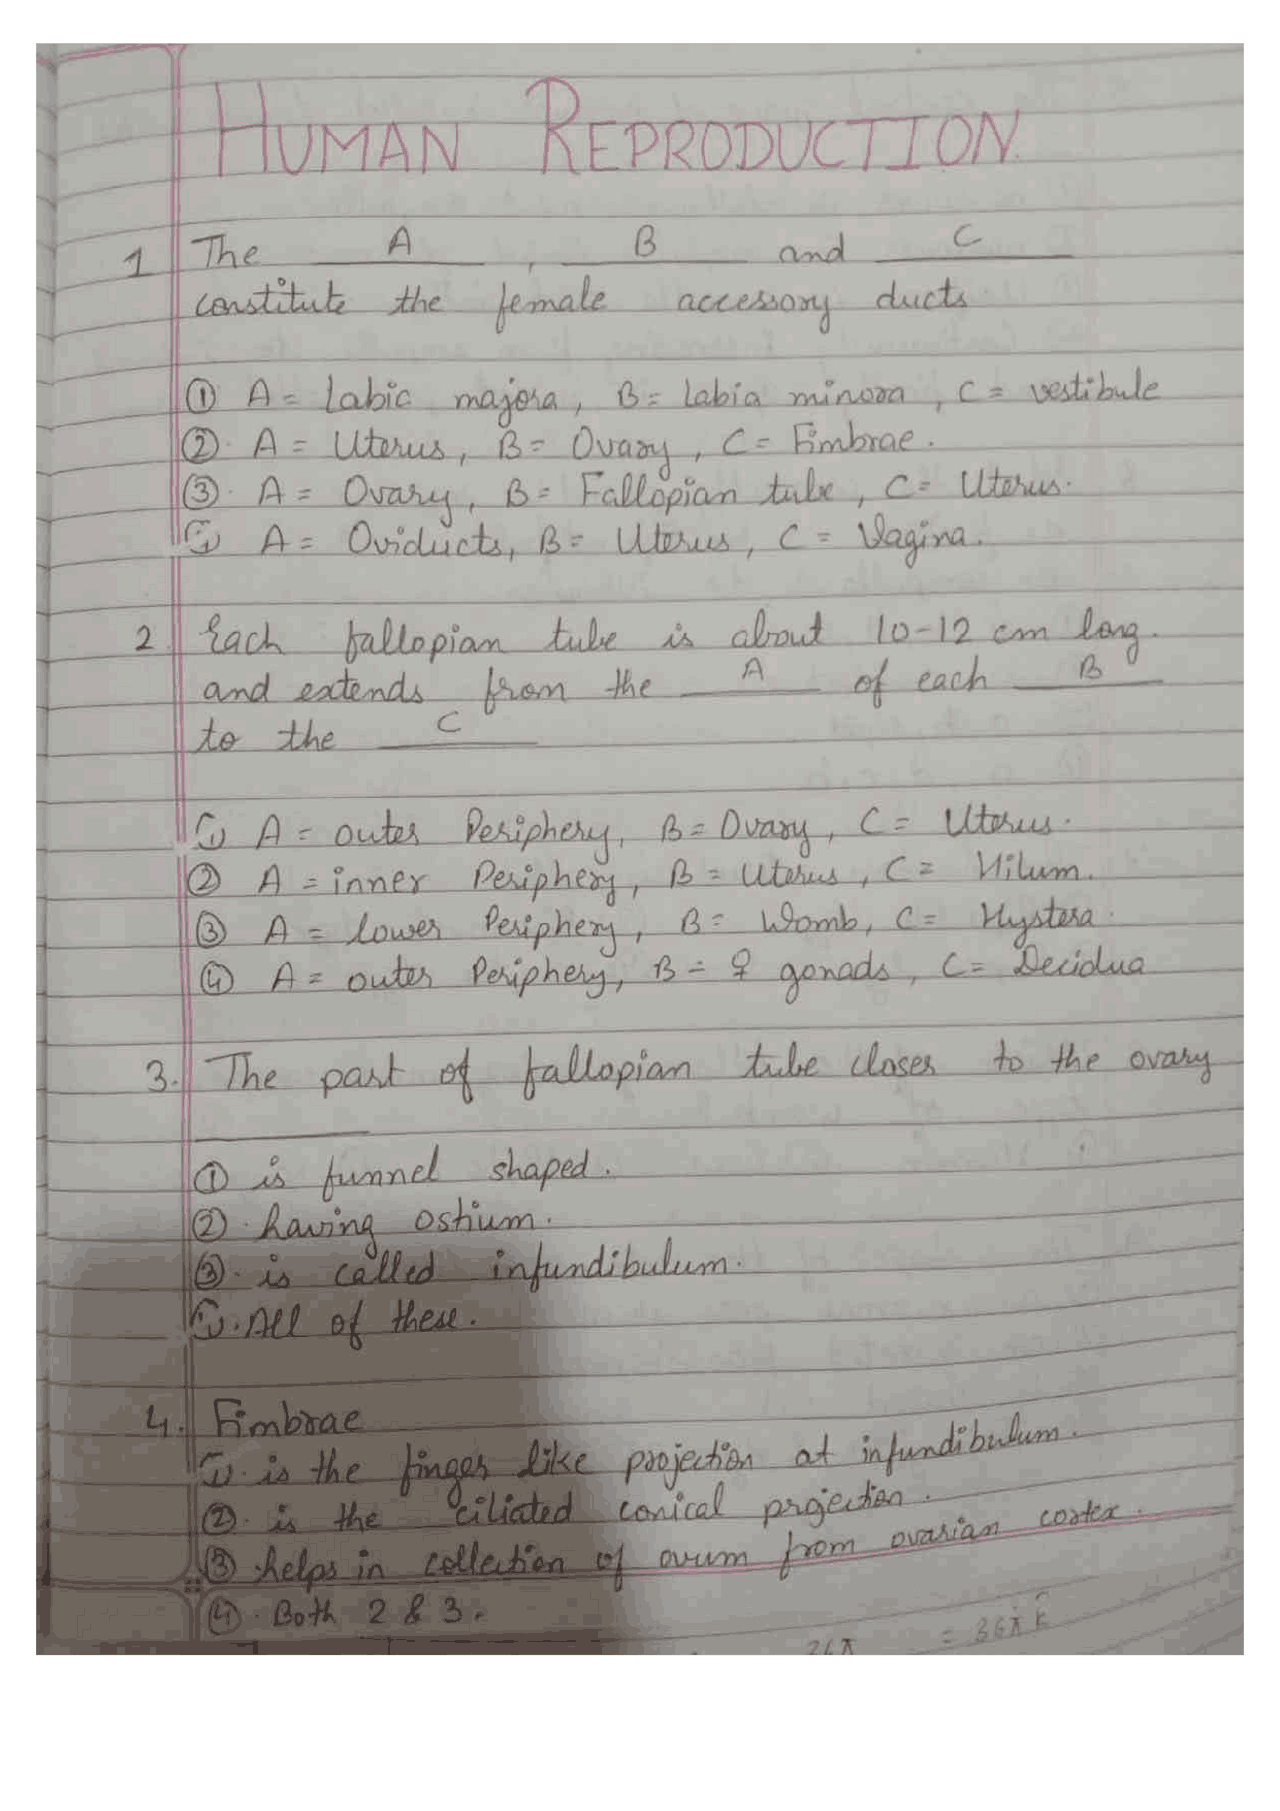 HUMAN REPRODUCTION
1 The A , B and C
constitute the female accessory ducts.
① A = Labia majora, B = Labia minora, C = vestibule
②. A = Uterus, B = Ovary, C = Fimbrae.
③. A = Ovary, B = Fallopian tube, C = Uterus.
④ A = Oviducts, B = Uterus, C = Vagina.
2. Each fallopian tube is about 10-12 cm long.
and extends from the A of each B
to the C
① A = outer Periphery, B = Ovary, C = Uterus.
② A = inner Periphery, B = Uterus, C = Hilum.
③ A = lower Periphery, B = Womb, C = Hystera.
④ A = outer Periphery, B = ♀ gonads, C = Decidua
3. The part of fallopian tube closer to the ovary
① is funnel shaped.
②. having ostium.
③. is called infundibulum.
④. All of these.
4. Fimbrae
①. is the finger like projection at infundibulum.
②. is the ciliated conical projection.
③ helps in collection of ovum from ovarian cortex.
④. Both 2 & 3.